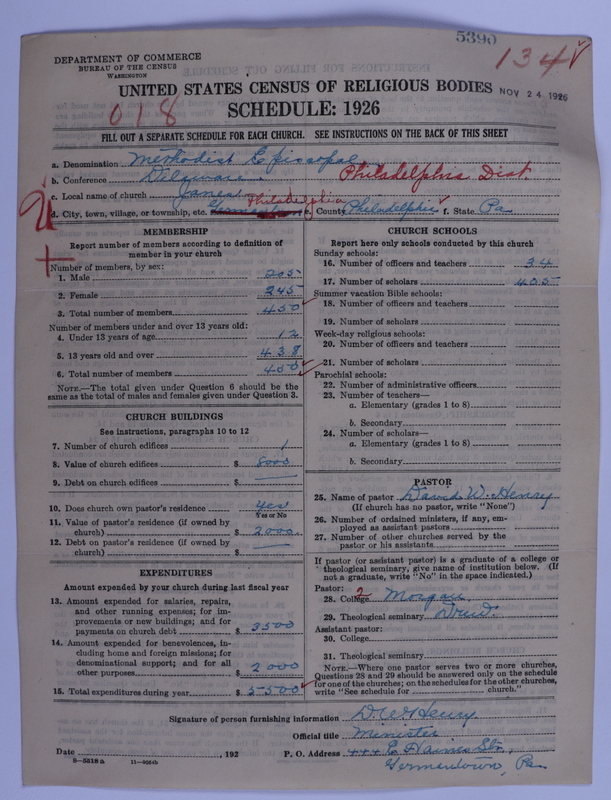 5390
134 ✓
DEPARTMENT OF COMMERCE
BUREAU OF THE CENSUS
WASHINGTON
UNITED STATES CENSUS OF RELIGIOUS BODIES
NOV 24 1926
018
SCHEDULE: 1926
FILL OUT A SEPARATE SCHEDULE FOR EACH CHURCH. SEE INSTRUCTIONS ON THE BACK OF THIS SHEET
a. Denomination Methodist Episcopal
b. Conference Delaware Philadelphia Dist
c. Local name of church Janes
d. City, town, village, or township, etc. Philadelphia e. County Philadelphia f. State Pa
MEMBERSHIP
Report number of members according to definition of
member in your church
Number of members, by sex:
1. Male 205
2. Female 245
3. Total number of members 450
Number of members under and over 13 years old:
4. Under 13 years of age 12
5. 13 years old and over 438
6. Total number of members 450
NOTE.—The total given under Question 6 should be the
same as the total of males and females given under Question 3.
CHURCH BUILDINGS
See instructions, paragraphs 10 to 12
7. Number of church edifices 1
8. Value of church edifices $ 8000
9. Debt on church edifices $
10. Does church own pastor's residence yes
Yes or No
11. Value of pastor's residence (if owned by
church) $ 2000.
12. Debt on pastor's residence (if owned by
church) $
EXPENDITURES
Amount expended by your church during last fiscal year
13. Amount expended for salaries, repairs,
and other running expenses; for im-
provements or new buildings; and for
payments on church debt $ 3500
14. Amount expended for benevolences, in-
cluding home and foreign missions; for
denominational support; and for all
other purposes $ 2000
15. Total expenditures during year $ 5500
CHURCH SCHOOLS
Report here only schools conducted by this church
Sunday schools:
16. Number of officers and teachers 34
17. Number of scholars 405
Summer vacation Bible schools:
18. Number of officers and teachers
19. Number of scholars
Week-day religious schools:
20. Number of officers and teachers
21. Number of scholars
Parochial schools:
22. Number of administrative officers
23. Number of teachers—
a. Elementary (grades 1 to 8)
b. Secondary
24. Number of scholars—
a. Elementary (grades 1 to 8)
b. Secondary
PASTOR
25. Name of pastor David W. Henry
(If church has no pastor, write "None")
26. Number of ordained ministers, if any, em-
ployed as assistant pastors
27. Number of other churches served by the
pastor or his assistants
If pastor (or assistant pastor) is a graduate of a college or
theological seminary, give name of institution below. (If
not a graduate, write "No" in the space indicated.)
Pastor:
28. College 2 Morgan
29. Theological seminary Drew
Assistant pastor:
30. College
31. Theological seminary
NOTE.—Where one pastor serves two or more churches,
Questions 28 and 29 should be answered only on the schedule
for one of the churches; on the schedules for the other churches,
write "See schedule for church."
Signature of person furnishing information D W Henry
Official title Minister
Date , 192 P. O. Address E Haines St.,
8—5218a 11—9264b
Germantown, Pa.